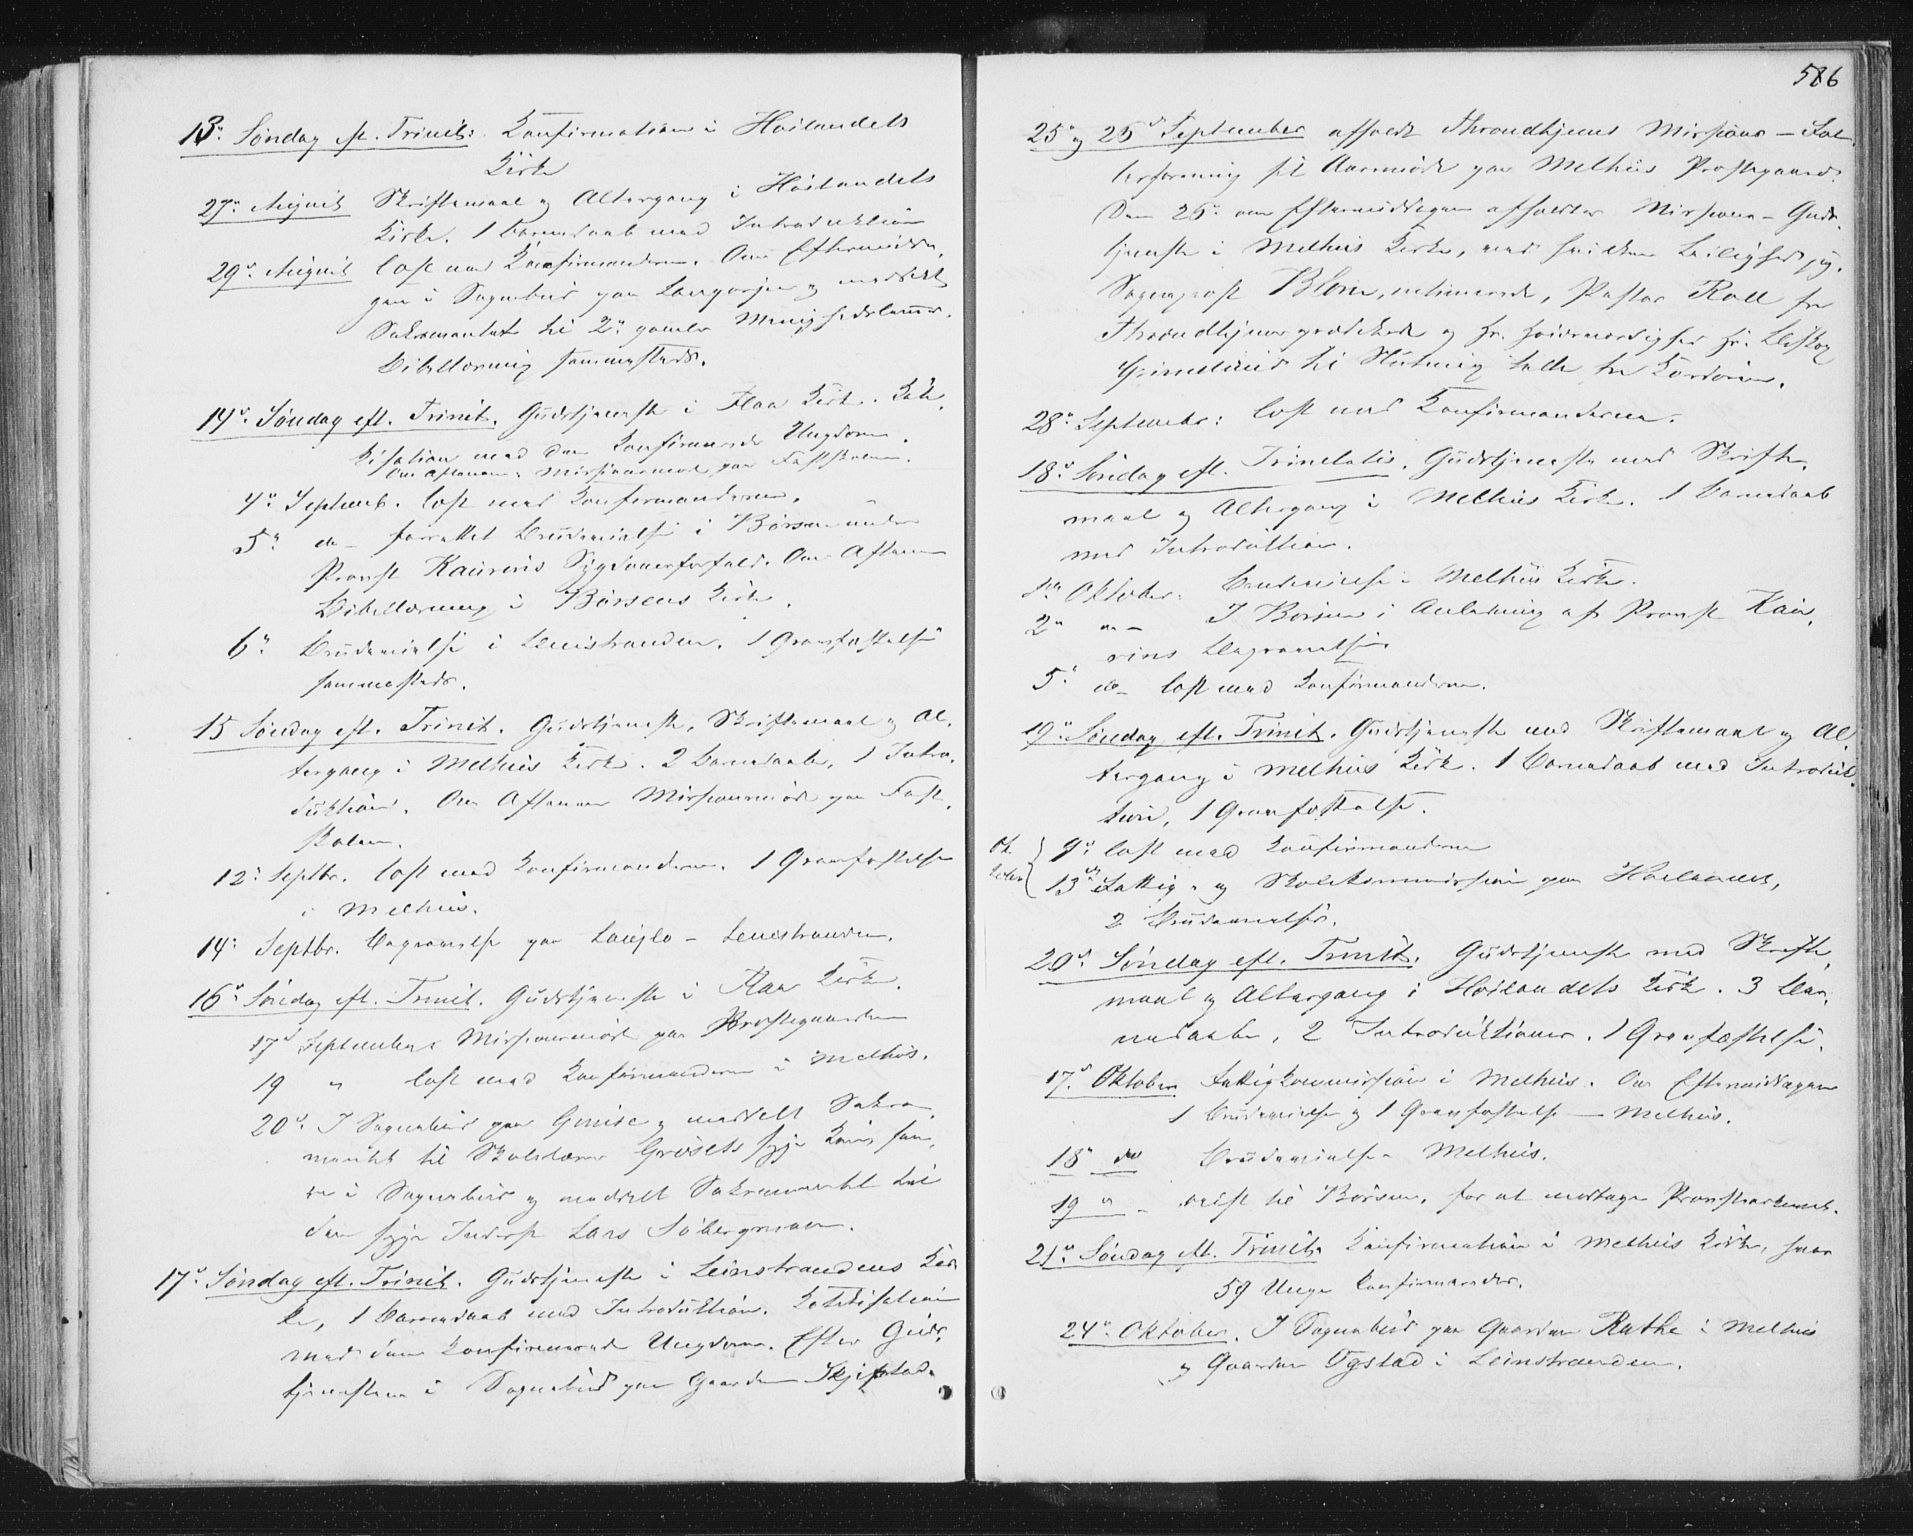 13de Søndag eft. Trinit: Konfirmation i Høilandets
Kirke
27de August Skriftemaal og Altergang i Høilandets
Kirke. 1 Barnedaab med Introduktion
29de August læst med Konfirmanderne. Om Eftermidda-
gen i Sognebud paa og meddelt
Sakramentet til 2de gamle Menighedslemmer.
Bibellæsning sammesteds.
14de Søndag eft. Trinit. Gudstjeneste i Flaa Kirke. Kate-
kisation med den konfirmerede Ungdom.
Om Aftenen Missionsmøde paa Fastskolen.
4de Septemb. læst med Konfirmanderne.
5te do forrettet Brudevielse i Børsen under
Provst Kaurins Sygdomsforfald. Om Aftenen
Bibellæsning i Børsens Kirke.
6te Brudevielse i Leinstranden. 1 Gravfæstelse
sammesteds.
15 Søndag eft. Trinit. Gudstjeneste, Skriftemaal og Al-
tergang i Melhus Kirke. 2 Barnedaab, 1 Intro-
duktion. Om Aftenen Missionsmøde paa Fast-
skolen.
12te Septbr. læst med Konfirmanderne. 1 Gravfæstelse
i Melhus.
14de Septbr. Begravelse paa - Leinstranden.
16de Søndag eft. Trinit. Gudstjeneste i Flaa Kirke.
17de September Missionsmøde paa Prostegaarden
19 " læst med Konfirmanderne i Melhus.
20de I Sognebud paa Gimse og meddelt Sakra-
mentet til Skolelærer Grøsets syge Kone,
i Sognebud og meddelt Sakramentet til
den syge Inderst Lars Søbergmoen.
17de Søndag eft. Trinit. Gudstjeneste i Leinstrandens Kir-
ke, 1 Barnedaab med Introduktion. Katekisation
med den konfirmerede Ungdom. Efter Guds-
tjenesten i Sognebud paa Gaarden Skjefstad.
586
25de og 26de September afholdt Throndhjems Missions-
forening sit Aarsmøde paa Melhus Prostegaard.
Den 26de om Eftermiddagen afholdtes Missions-Guds-
tjeneste i Melhus Kirke, ved hvilken Leilighed jeg,
Sogneprest Blom, messede, Pastor Roll fra
Throndhjem prædikede og Hr. Høiærværdighed Hr. Biskop
Grimelund til Slutning talte fra Kordøren.
28de Septembr: læst med Konfirmanderne.
18de Søndag eft. Trinitatis. Gudstjeneste med Skrifte-
maal og Altergang i Melhus Kirke. 1 Barnedaab
med Introduktion.
1ste Oktober: Brudevielse i Melhus Kirke.
2den do - I Børsen i Anledning af Provst Kau-
rins Begravelse.
5te do læst med Konfirmanderne.
19de Søndag eft. Trinit. Gudstjeneste med Skriftemaal og Al-
tergang i Melhus Kirke. 1 Barnedaab med Introduk-
tion, 1 Gravfæstelse.
Ok-
tober
9de læst med Konfirmanderne
13de Fattig- og Skolekommission paa Høilandet,
2 Brudevielser.
20de Søndag eft. Trinit. Gudstjeneste med Skrifte-
maal og Altergang i Høilandets Kirke. 3 Bar-
nedaabe, 2 Introduktioner. 1 Gravfæstelse.
17de Oktober Fattigkommission i Melhus. Om Eftermiddagen
1 Brudevielse og 1 Gravfæstelse - Melhus.
18de do Brudevielse - Melhus.
19 " - reist til Børsen, for at modtage Provstearkivet.
21de Søndag eft. Trinit. Konfirmation i Melhus Kirke, hvor
59 Unge konfirmeredes.
24de Oktober. I Sognebud paa Gaarden Rathe i Melhus
og Gaarden Ogstad i Leinstranden.